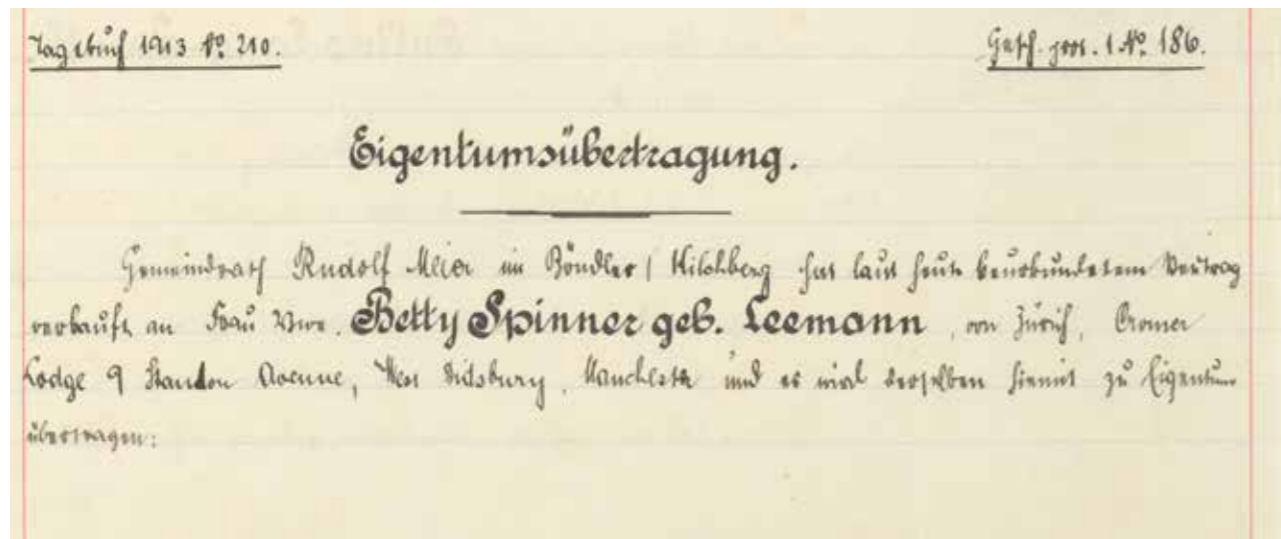 Tagebuch 1913 No. 210.
Gesch. prot. 1 No. 186.
Eigentumsübertragung.
Gemeindrath Rudolf Meier im Böndler / Kilchberg hat laut heute beurkundetem Vertrag
verkauft an Frau Wwe. Betty Spinner geb. Leemann, von Zürich, Cromer
Lodge 9 Standon Avenue, West Didsbury, Manchester und es wird derselben hiemit zu Eigentum
übertragen: